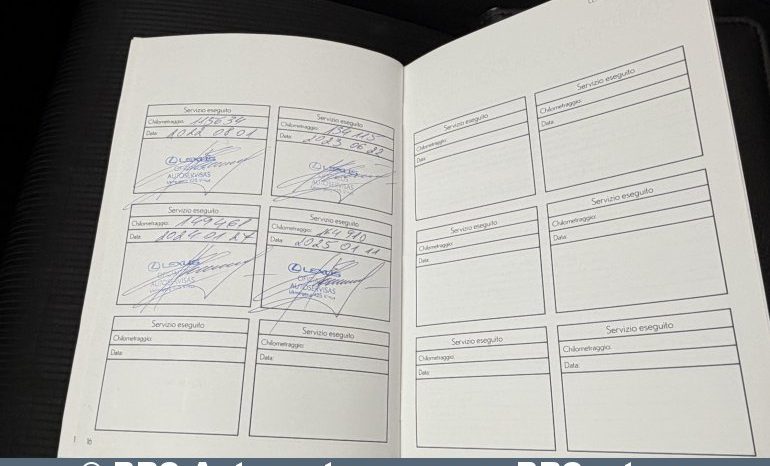 Servizio eseguito
Chilometraggio: 115634
Data: 2022 08 01
LEXUS
AUTOSERVISAS
Servizio eseguito
Chilometraggio: 134 115
Data: 2023 06 22
LEXUS
AUTOSERVISAS
Servizio eseguito
Chilometraggio: 149468
Data: 2024 01 27
LEXUS
AUTOSERVISAS
Servizio eseguito
Chilometraggio: 164 910
Data: 2025 01 11
LEXUS
AUTOSERVISAS
Servizio eseguito
Chilometraggio:
Data:
Servizio eseguito
Chilometraggio:
Data:
16
Servizio eseguito
Chilometraggio:
Data:
Servizio eseguito
Chilometraggio:
Data:
Servizio eseguito
Chilometraggio:
Data:
Servizio eseguito
Chilometraggio:
Data:
Servizio eseguito
Chilometraggio:
Data:
Servizio eseguito
Chilometraggio:
Data: